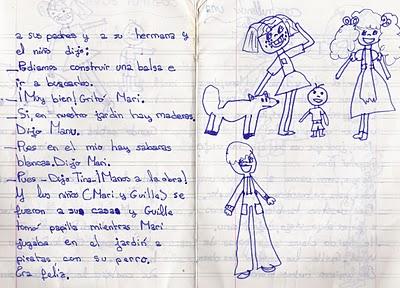 a sus padres y a su hermana y
el niño dijo:
_Podiamos construir una balsa e
ir a buscarlos.
_¡Muy bien! Grito Mari.
_Si, en nuestro jardin hay maderas.
Dijo Manu.
_Pues en el mio hay sabanas
blancas. Dijo Mari.
_Pues _Dijo Tina_ ¡Manos a la obra!
Y los niños (Mari y Guille) se
fueron a sus casas y Guille
tomó papilla mientras Mari
jugaba en el jardín a
piratas con su perro.
Era feliz.